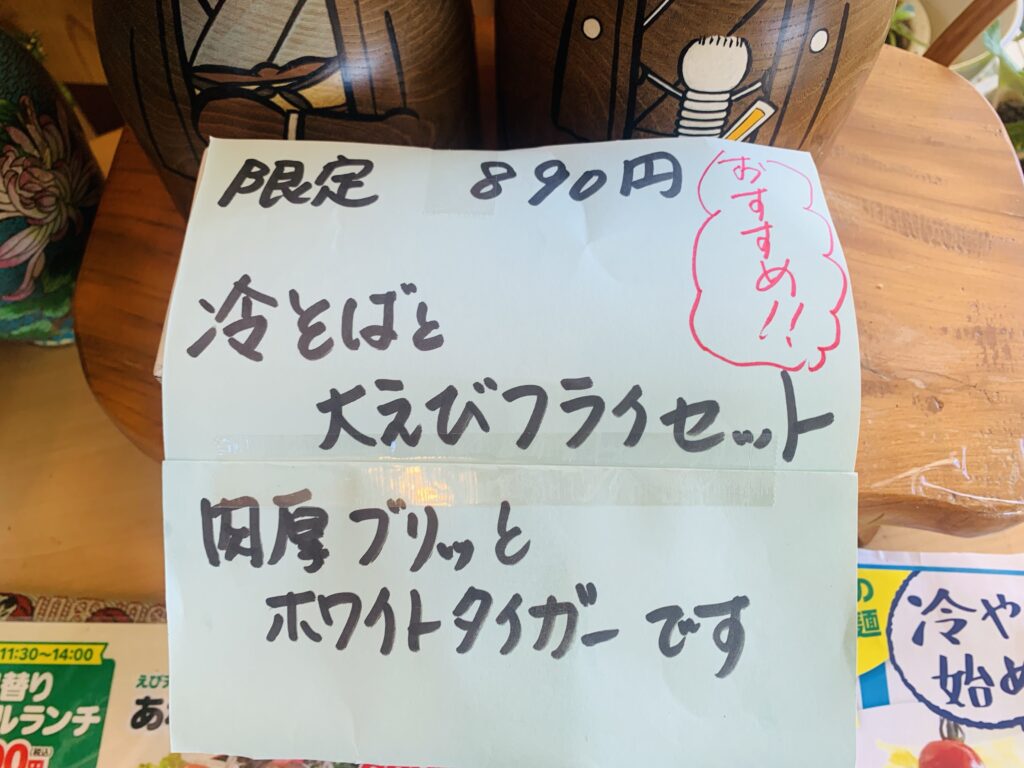 限定 890円
おすすめ!!
冷そばと
大えびフライセット
肉厚ブリッと
ホワイトタイガーです
11:30〜14:00
替り
ルランチ
00円(税込)
えび
あ
の
麺
冷や
始め